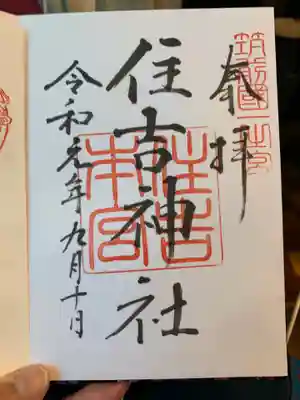 筑前國一之宮
奉拝
住吉神社
住吉本宮
令和元年九月十日